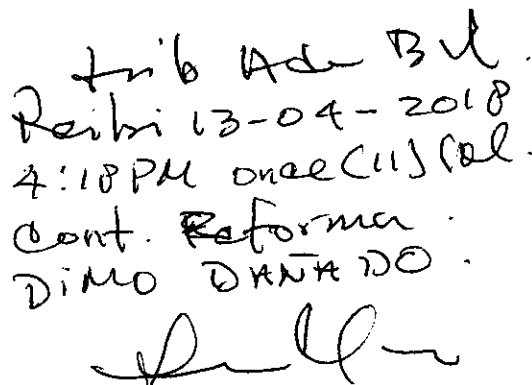 trib Adm Bol.
Recibi 13-04-2018
4:18PM once (11) fol.
Cont. Reforma.
DiMO DAÑADO.